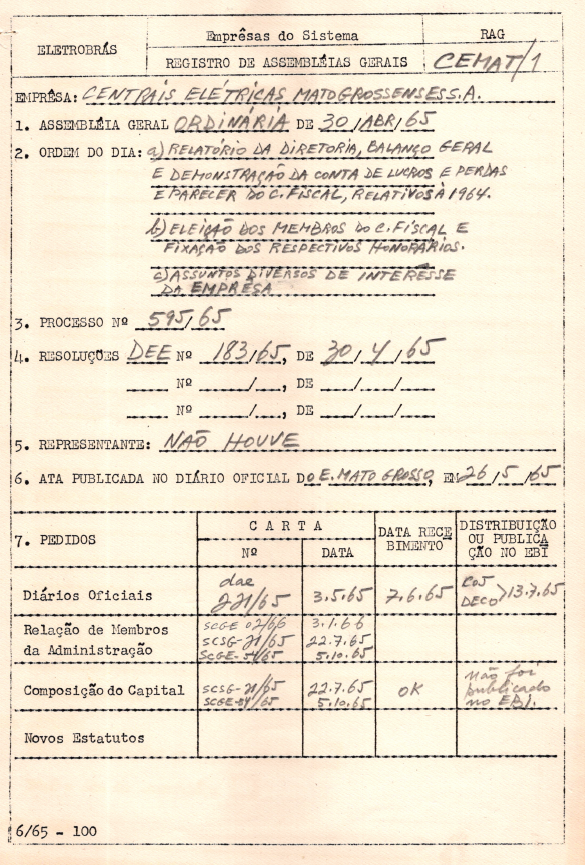 ELETROBRÁS
Emprêsas do Sistema
RAG
REGISTRO DE ASSEMBLÉIAS GERAIS
CEMAT/1
EMPRÊSA: CENTRAIS ELÉTRICAS MATOGROSSENSES S.A.
1. ASSEMBLÉIA GERAL ORDINÁRIA DE 30/ABR/65
2. ORDEM DO DIA: a) RELATÓRIO DA DIRETORIA, BALANÇO GERAL
E DEMONSTRAÇÃO DA CONTA DE LUCROS E PERDAS
E PARECER DO C. FISCAL, RELATIVOS À 1964.
b) ELEIÇÃO DOS MEMBROS DO C. FISCAL E
FIXAÇÃO DOS RESPECTIVOS HONORÁRIOS.
c) ASSUNTOS DIVERSOS DE INTERÊSSE
DA EMPRÊSA
3. PROCESSO Nº 595/65
4. RESOLUÇÕES DEE Nº 183/65, DE 30/4/65
Nº /, DE / /
Nº /, DE / /
5. REPRESENTANTE: NÃO HOUVE
6. ATA PUBLICADA NO DIÁRIO OFICIAL DO E. MATO GROSSO, EM 26/5/65
7. PEDIDOS
CARTA
Nº
DATA
DATA RECE
BIMENTO
DISTRIBUIÇÃO
OU PUBLICA
ÇÃO NO EBI
Diários Oficiais
dae
221/65
3.5.65
7.6.65
COJ
DECO
13.7.65
Relação de Membros
da Administração
SCGE 02/66 3.1.66
SCSG-21/65 22.7.65
SCGE-54/65 5.10.65
Composição do Capital
SCSG-21/65 22.7.65
SCGE-54/65 5.10.65
OK
não for
publicado
no EBI.
Novos Estatutos
6/65 - 100